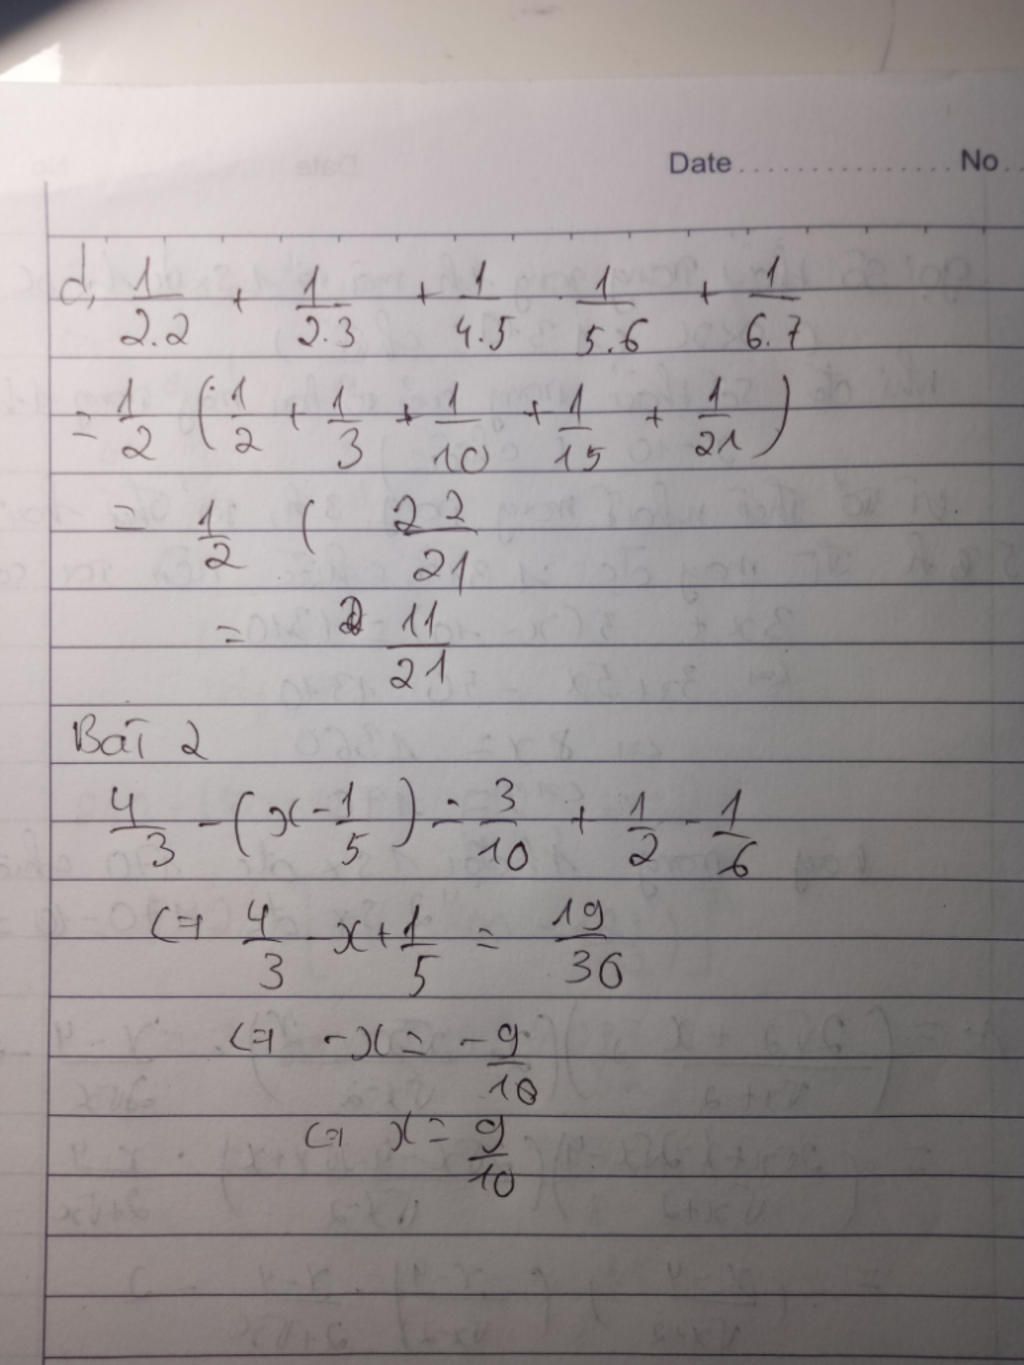 Date ............... No ..
d, 1/2.2 + 1/2.3 + 1/4.5 . 1/5.6 + 1/6.7
= 1/2 ( 1/2 + 1/3 + 1/10 + 1/15 + 1/21 )
= 1/2 ( 22/21
= 11/21
Bài 2
4/3 - ( x - 1/5 ) = 3/10 + 1/2 - 1/6
<=> 4/3 - x + 1/5 = 19/30
<=> - x = - 9/10
<=> x = 9/10